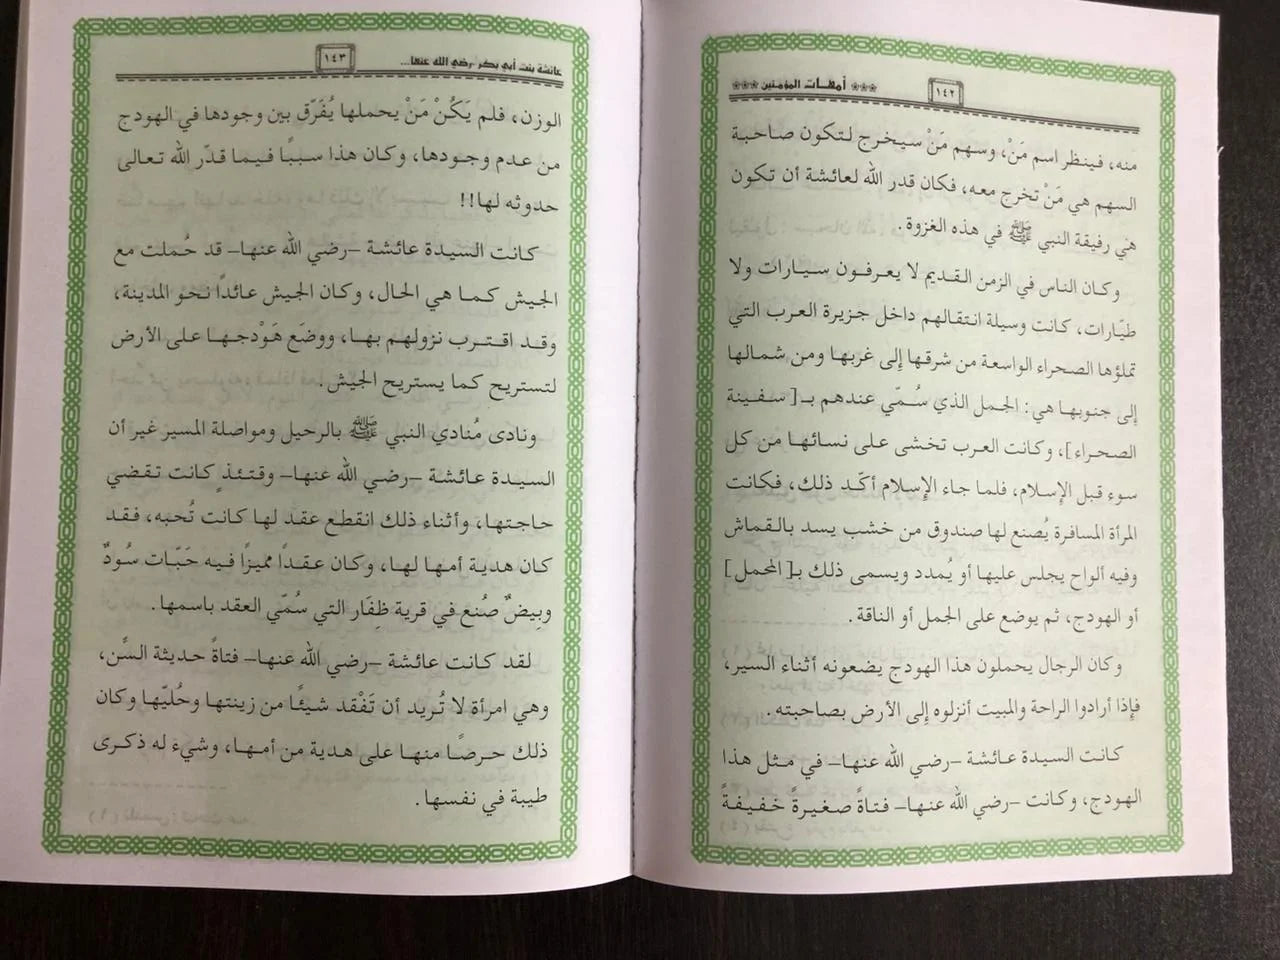 ١٤٢
*** أمهات المؤمنين ***
منه، فينظر اسم مَنْ، وسهم مَنْ سيخرج لتكون صاحبة
السهم هي مَنْ تخرج معه، فكان قدر الله لعائشة أن تكون
هي رفيقة النبي ﷺ في هذه الغزوة.
وكان الناس في الزمن القديم لا يعرفون سيارات ولا
طيّارات، كانت وسيلة انتقالهم داخل جزيرة العرب التي
تملؤها الصحراء الواسعة من شرقها إلى غربها ومن شمالها
إلى جنوبها هي: الجمل الذي سُمّي عندهم بـ[سفينة
الصحراء]، وكانت العرب تخشى على نسائها من كل
سوء قبل الإسلام، فلما جاء الإسلام أكّد ذلك، فكانت
المرأة المسافرة يُصنع لها صندوق من خشب يسد بالقماش
وفيه ألواح يجلس عليها أو يُمدد ويسمى ذلك بـ[المحمل]
أو الهودج، ثم يوضع على الجمل أو الناقة.
وكان الرجال يحملون هذا الهودج يضعونه أثناء السير،
فإذا أرادوا الراحة والمبيت أنزلوه إلى الأرض بصاحبته.
كانت السيدة عائشة -رضي الله عنها- في مثل هذا
الهودج، وكانت -رضي الله عنها- فتاةً صغيرةً خفيفةً
عائشة بنت أبي بكر -رضي الله عنها...
١٤٣
الوزن، فلم يَكُنْ مَنْ يحملها يُفَرّق بين وجودها في الهودج
من عدم وجودها، وكان هذا سببًا فيما قدّر الله تعالى
حدوثه لها!!
كانت السيدة عائشة -رضي الله عنها- قد حُملت مع
الجيش كما هي الحال، وكان الجيش عائدًا نحو المدينة،
وقد اقترب نزولهم بها، ووضَع هَوْدجها على الأرض
لتستريح كما يستريح الجيش.
ونادى مُنادي النبي ﷺ بالرحيل ومواصلة المسير غير أن
السيدة عائشة -رضي الله عنها- وقتئذٍ كانت تقضي
حاجتها، وأثناء ذلك انقطع عقد لها كانت تُحبه، فقد
كان هدية أمها لها، وكان عقدًا مميزًا فيه حَبّات سُودٌ
وبِيضٌ صُنع في قرية ظِفَار التي سُمّي العقد باسمها.
لقد كانت عائشة -رضي الله عنها- فتاةً حديثة السِّن،
وهي امرأة لا تُريد أن تَفْقد شيئًا من زينتها وحُليّها وكان
ذلك حرصًا منها على هدية من أمها، وشيء له ذكرى
طيبة في نفسها.